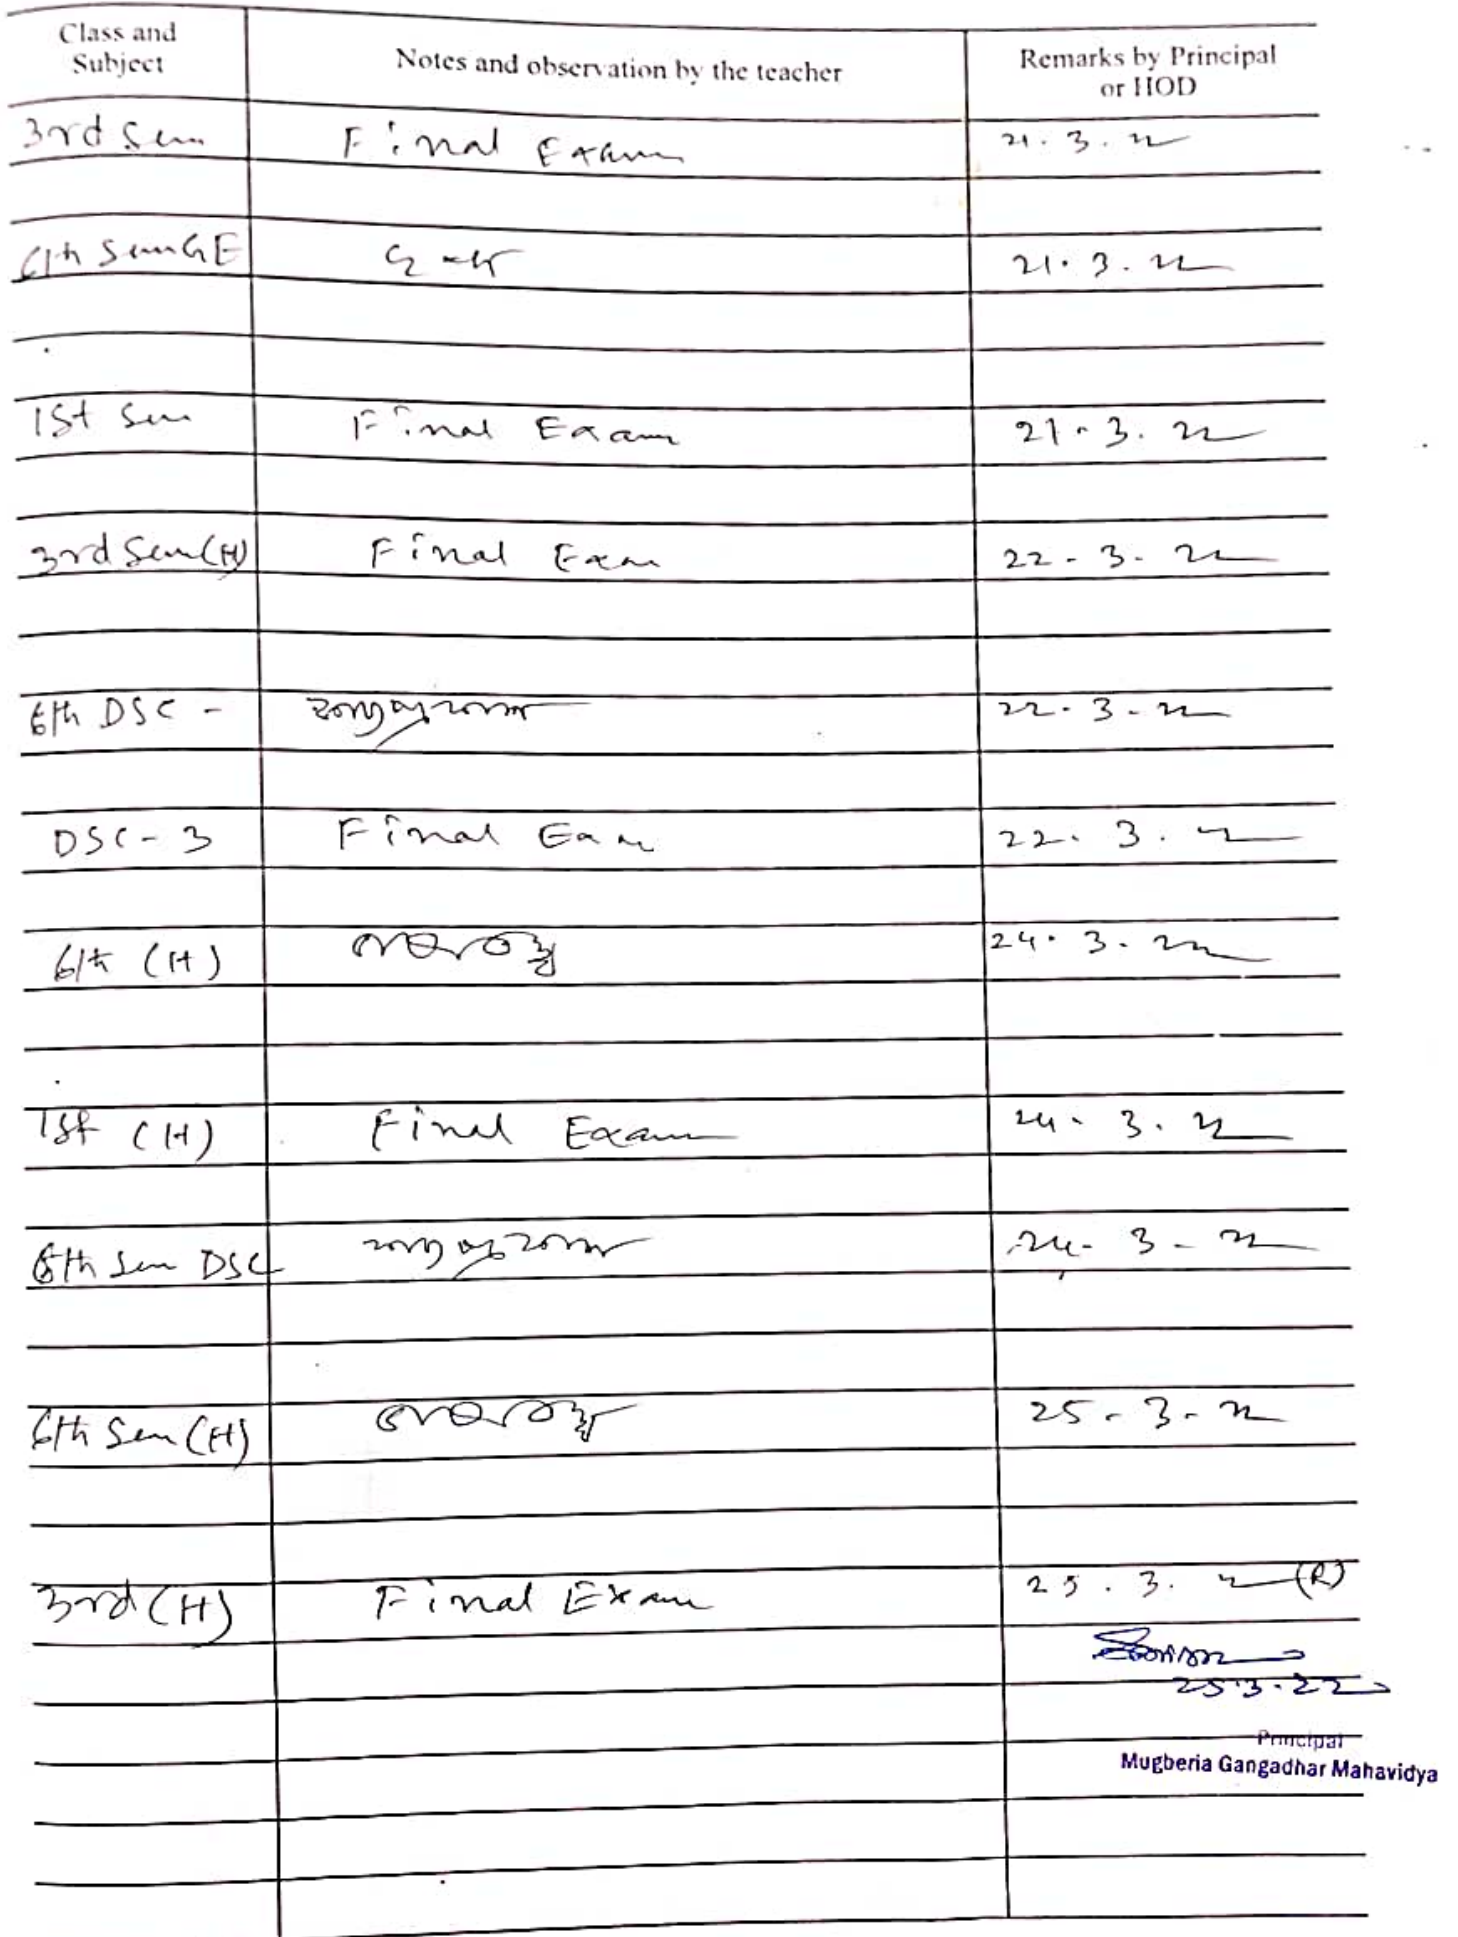 Class and
Subject
Notes and observation by the teacher
Remarks by Principal
or HOD
3rd Sem Final Exam 21.3.22
6th Sem GE 21.3.22
1st Sem Final Exam 21.3.22
3rd Sem (H) Final Exam 22-3-22
6th DSC - 22.3-22
DSC-3 Final Exam 22.3.22
6th (H) 24.3.22
1st (H) Final Exam 24.3.22
6th Sem DSC 24-3-22
6th Sem (H) 25-3-22
3rd (H) Final Exam 25.3.22 (R)
25.3.22
Principal
Mugberia Gangadhar Mahavidya